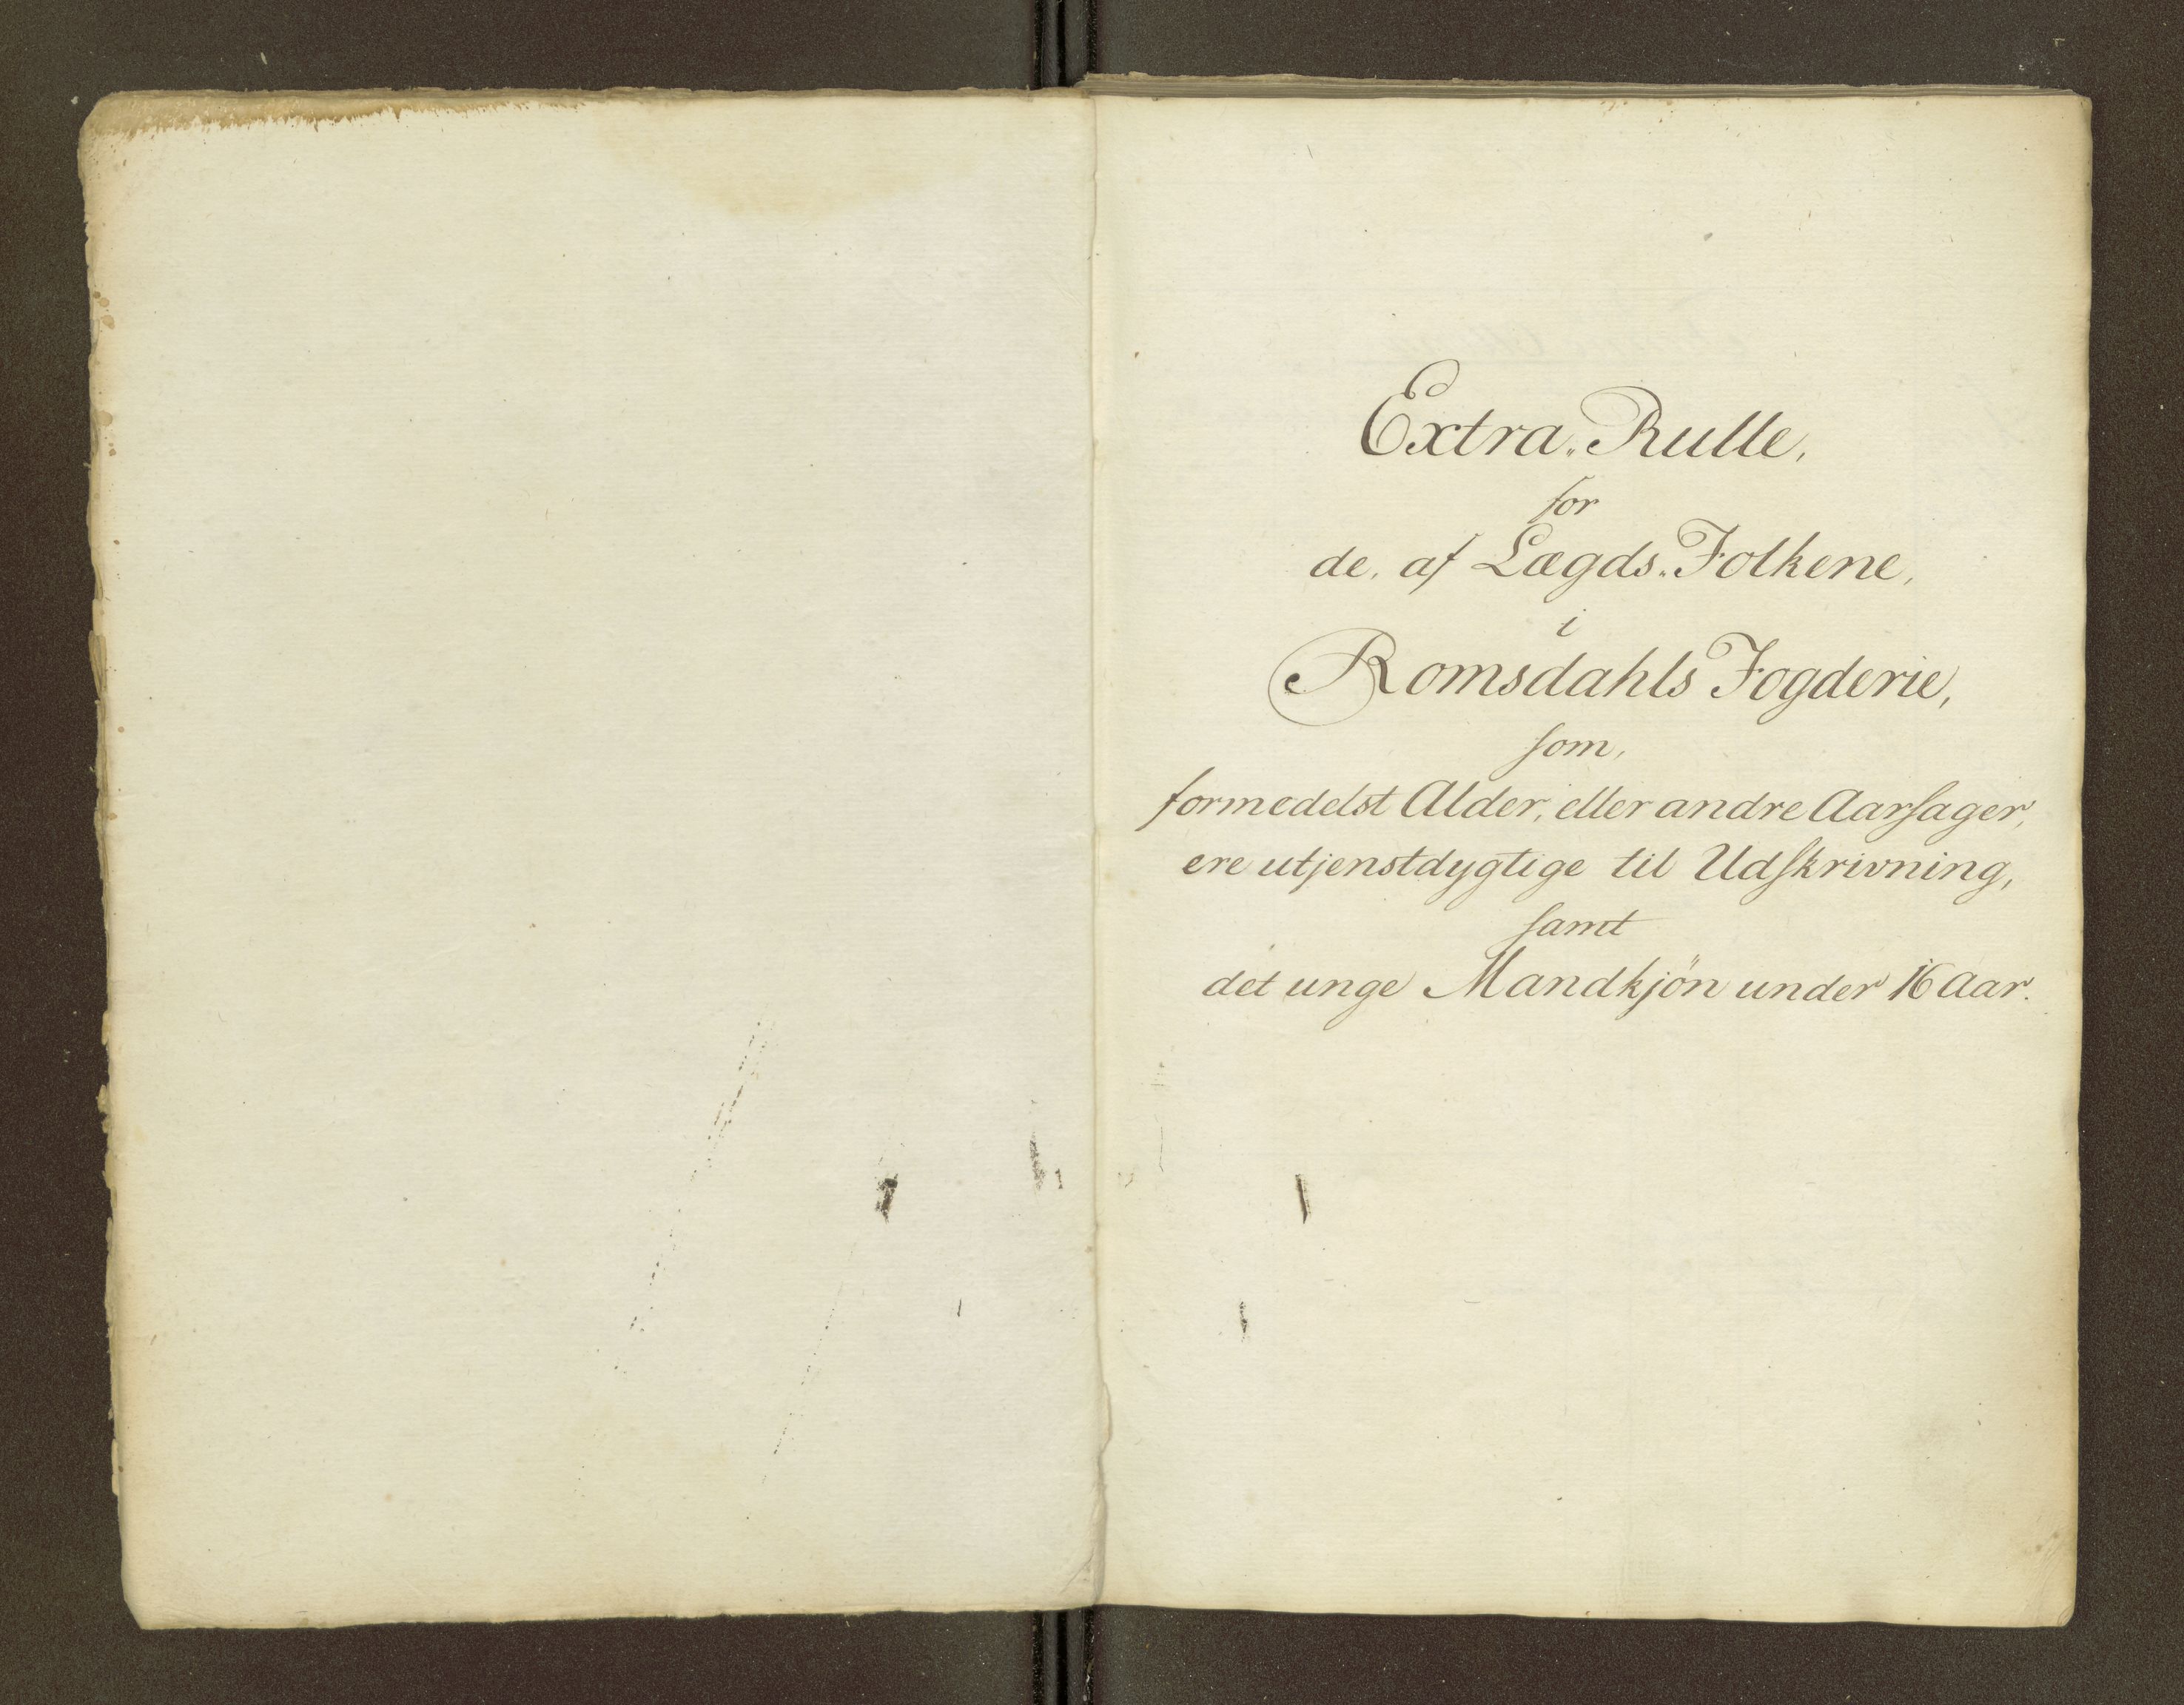 Extra„Rulle,
for
de, af Lægds„Folkene,
i
Romsdahls Fogderie,
som,
formedelst Alder, eller andre Aarsager,
ere utjenstdygtige til Udskrivning,
samt
det unge Mandkjön under 16 Aar.